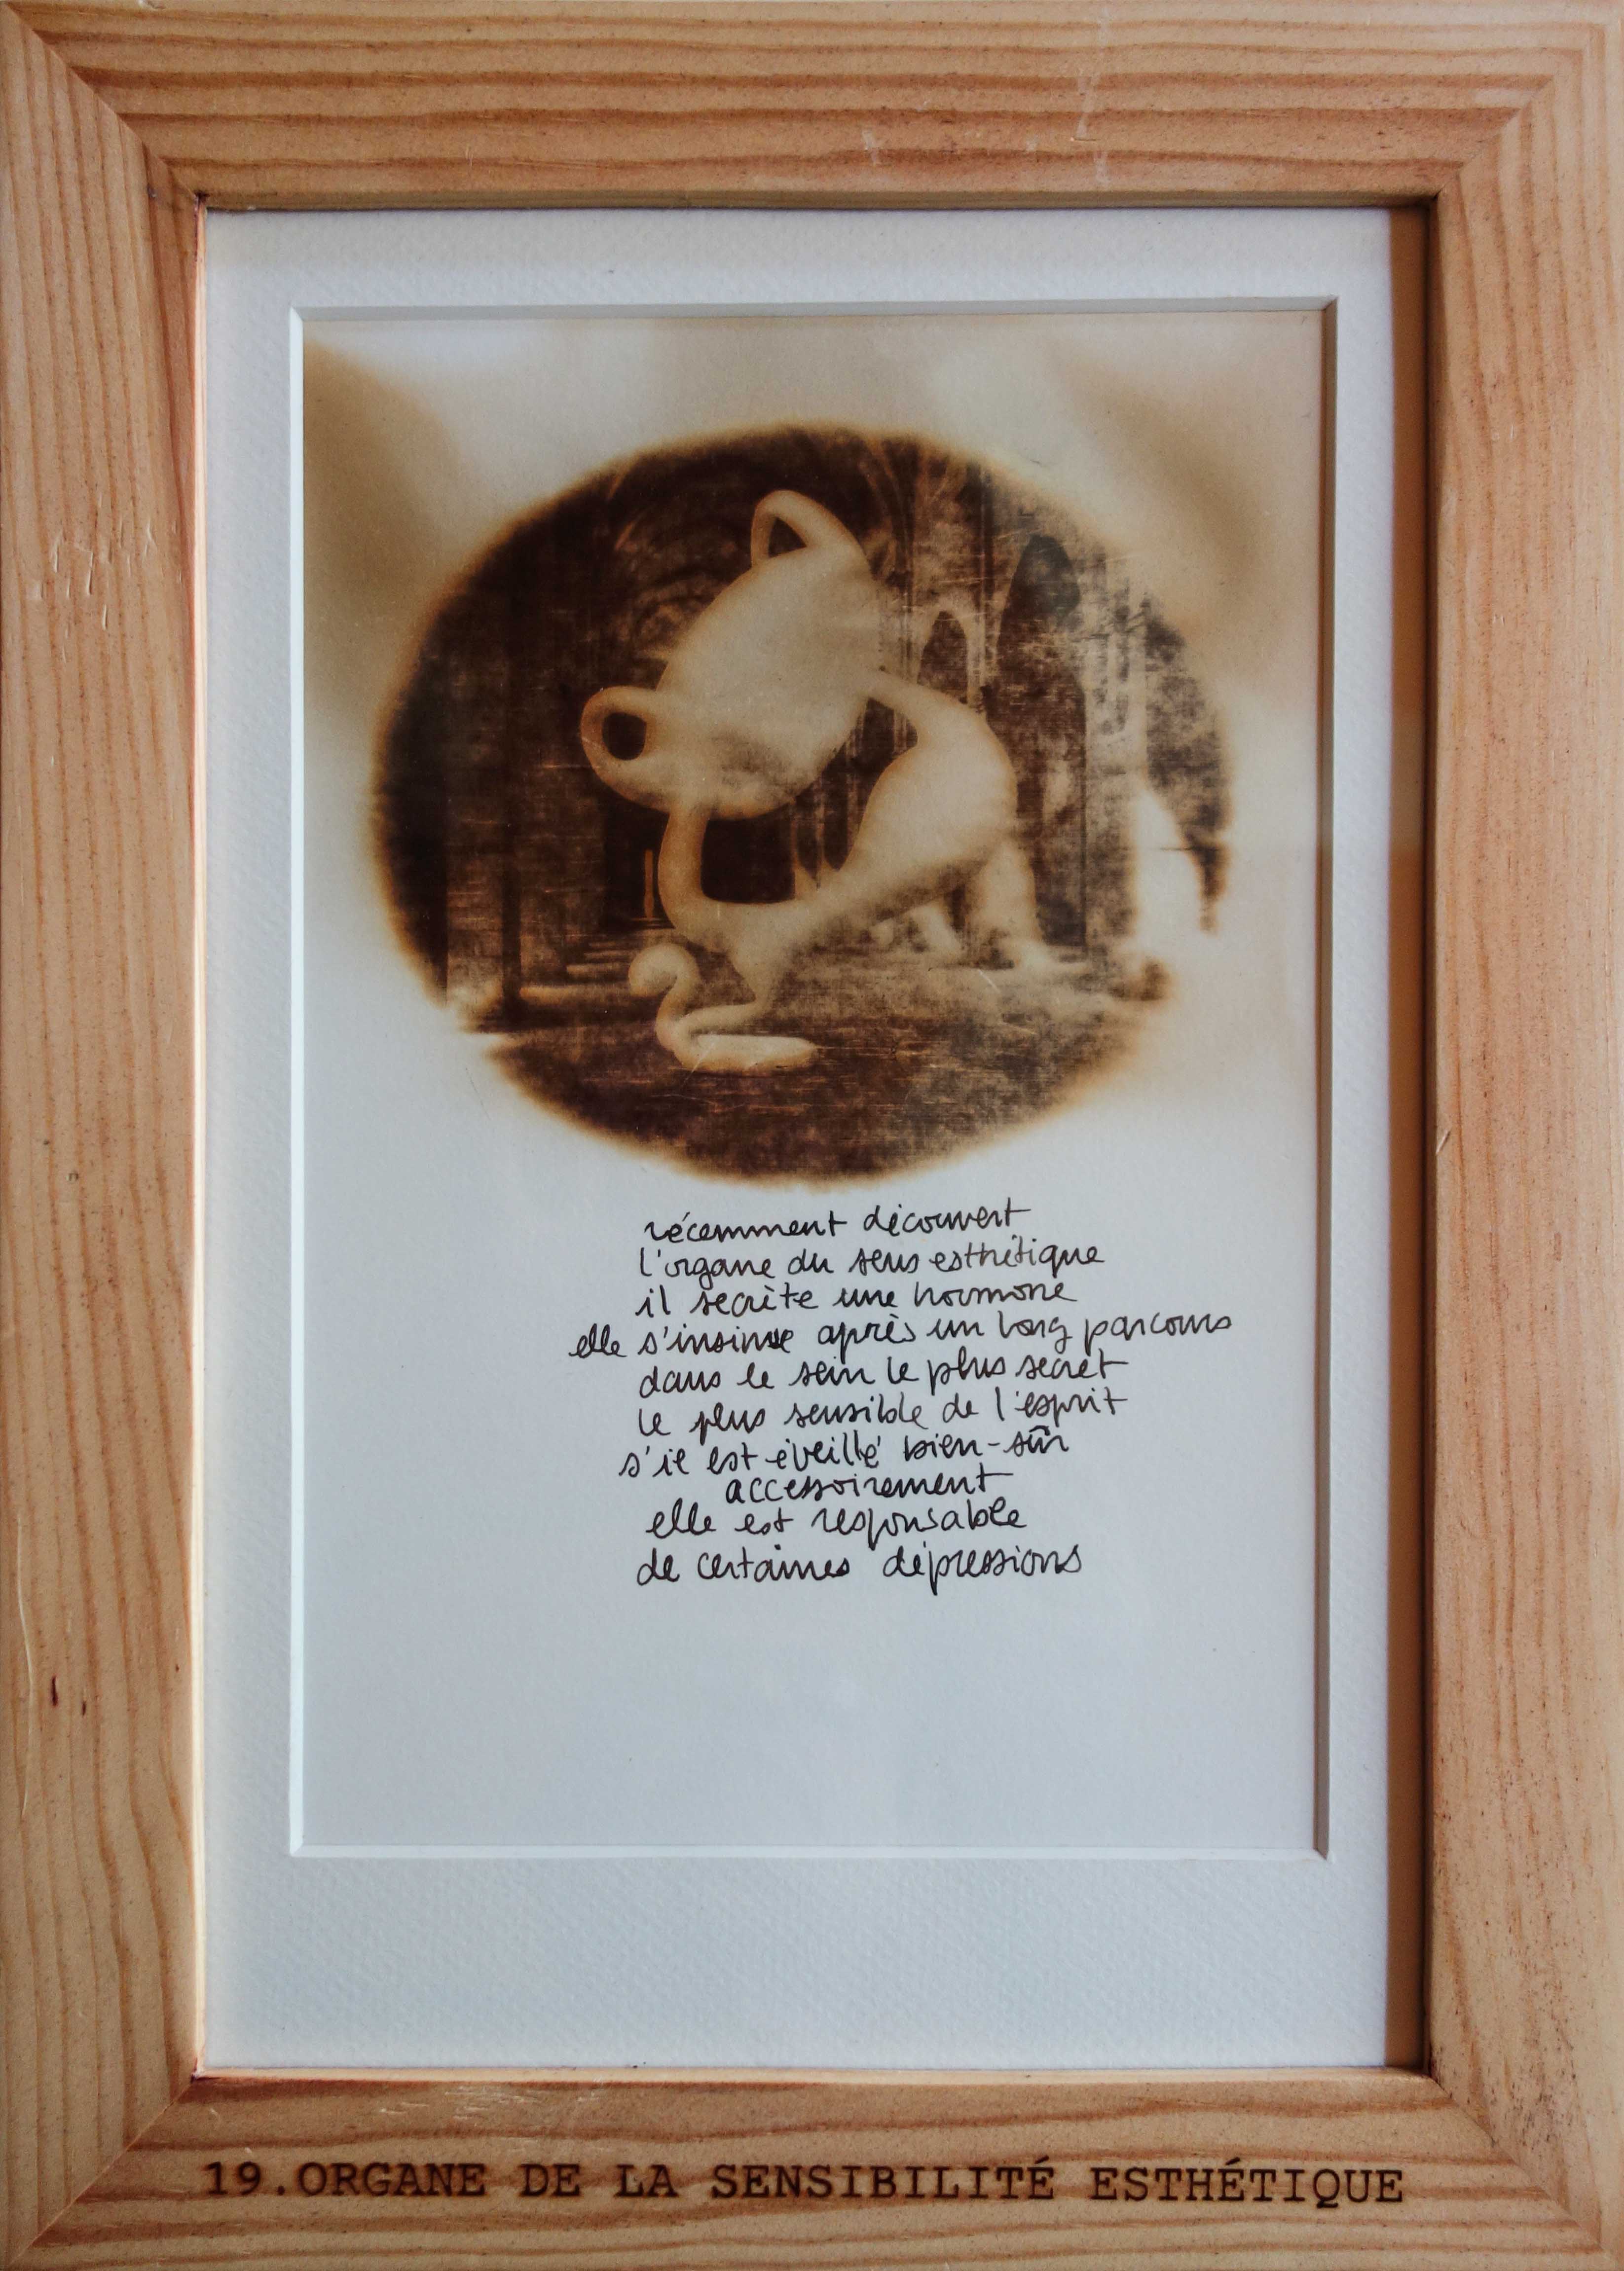 récemment découvert
l'organe du sens esthétique
il secrète une hormone
elle s'insinue après un long parcours
dans le sein le plus secret
le plus sensible de l'esprit
s'il est éveillé bien-sûr
accessoirement
elle est responsable
de certaines dépressions
19.ORGANE DE LA SENSIBILITÉ ESTHÉTIQUE